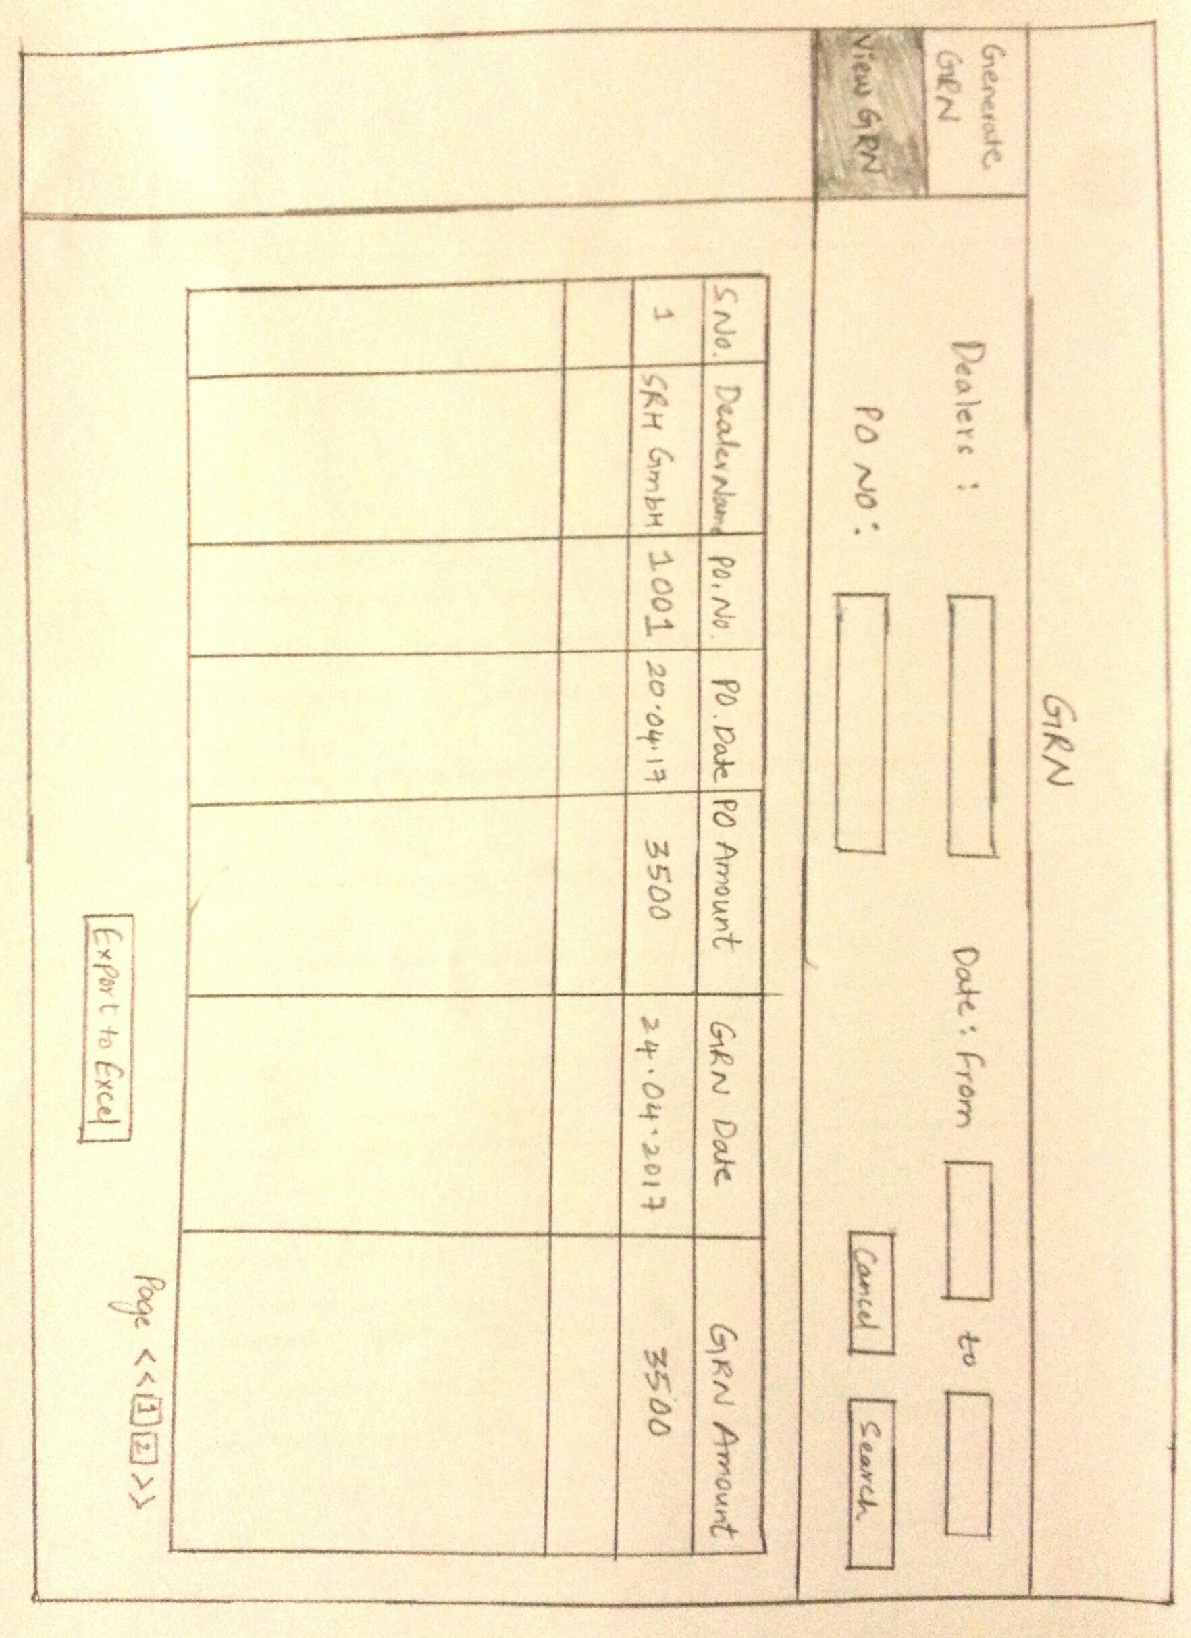 GRN
Generate
GRN
View GRN
Dealers :
Date : From
to
PO NO :
Cancel
Search
S No. Dealer Name PO. No. PO. Date PO Amount GRN Date GRN Amount
1 SRH GmbH 1001 20.04.17 3500 24.04.2017 3500
Export to Excel
Page << 1 2 >>